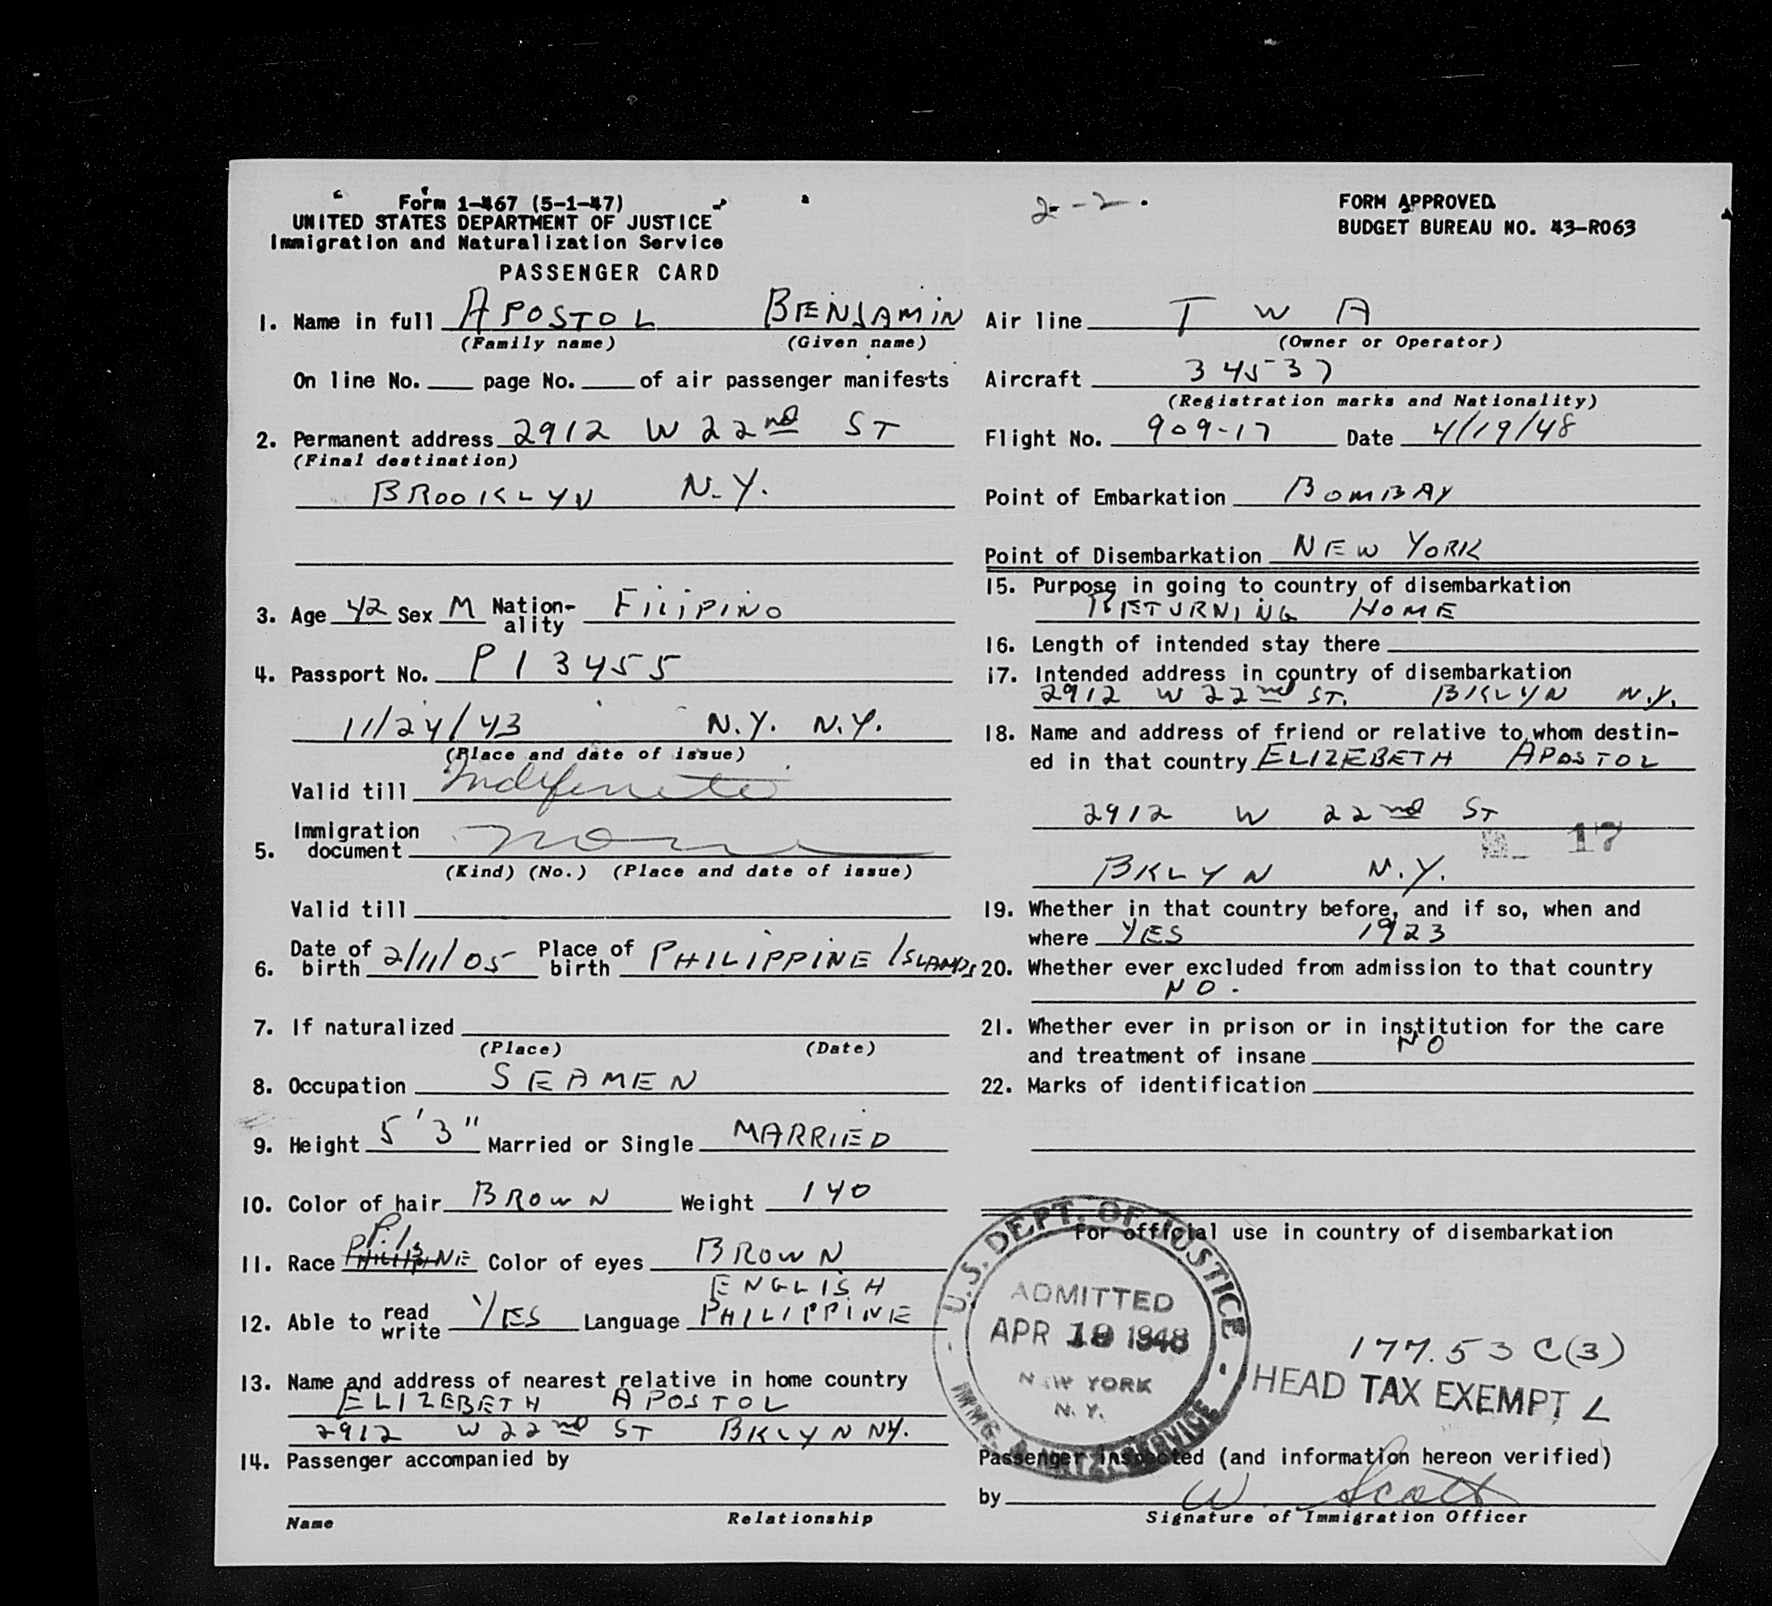 Form I-467 (5-1-47)
UNITED STATES DEPARTMENT OF JUSTICE
Immigration and Naturalization Service
PASSENGER CARD
2-2.
FORM APPROVED.
BUDGET BUREAU NO. 43-R063
1. Name in full APOSTOL BENJAMIN
(Family name) (Given name)
On line No. ___ page No. ___ of air passenger manifests
2. Permanent address 2912 W 22nd ST
(Final destination)
BROOKLYN N.Y.
3. Age 42 Sex M Nation-ality FILIPINO
4. Passport No. P 13455
11/24/43 N.Y. N.Y.
(Place and date of issue)
Valid till Indefinite
5. Immigration document None
(Kind) (No.) (Place and date of issue)
Valid till
6. Date of birth 2/11/05 Place of birth PHILIPPINE ISLANDS
7. If naturalized
(Place) (Date)
8. Occupation SEAMEN
9. Height 5'3" Married or Single MARRIED
10. Color of hair BROWN Weight 140
P.I.
11. Race Color of eyes BROWN
ENGLISH
12. Able to read write YES Language PHILIPPINE
13. Name and address of nearest relative in home country
ELIZEBETH APOSTOL
2912 W 22nd ST BKLYN NY.
14. Passenger accompanied by
Name Relationship
Air line T W A
(Owner or Operator)
Aircraft 34537
(Registration marks and Nationality)
Flight No. 909-17 Date 4/19/48
Point of Embarkation BOMBAY
Point of Disembarkation NEW YORK
15. Purpose in going to country of disembarkation
RETURNING HOME
16. Length of intended stay there
17. Intended address in country of disembarkation
2912 W 22nd ST. BKLYN N.Y.
18. Name and address of friend or relative to whom destin-
ed in that country ELIZEBETH APOSTOL
2912 W 22nd ST
17
BKLYN N.Y.
19. Whether in that country before, and if so, when and
where YES 1923
20. Whether ever excluded from admission to that country
NO.
21. Whether ever in prison or in institution for the care
and treatment of insane NO
22. Marks of identification
For official use in country of disembarkation
U.S. DEPT. OF JUSTICE
ADMITTED
APR 19 1948
NEW YORK
N.Y.
IMMG. & NATZ. SERVICE
177.53 C(3)
HEAD TAX EXEMPT L
Passenger inspected (and information hereon verified)
by W. Scott
Signature of Immigration Officer